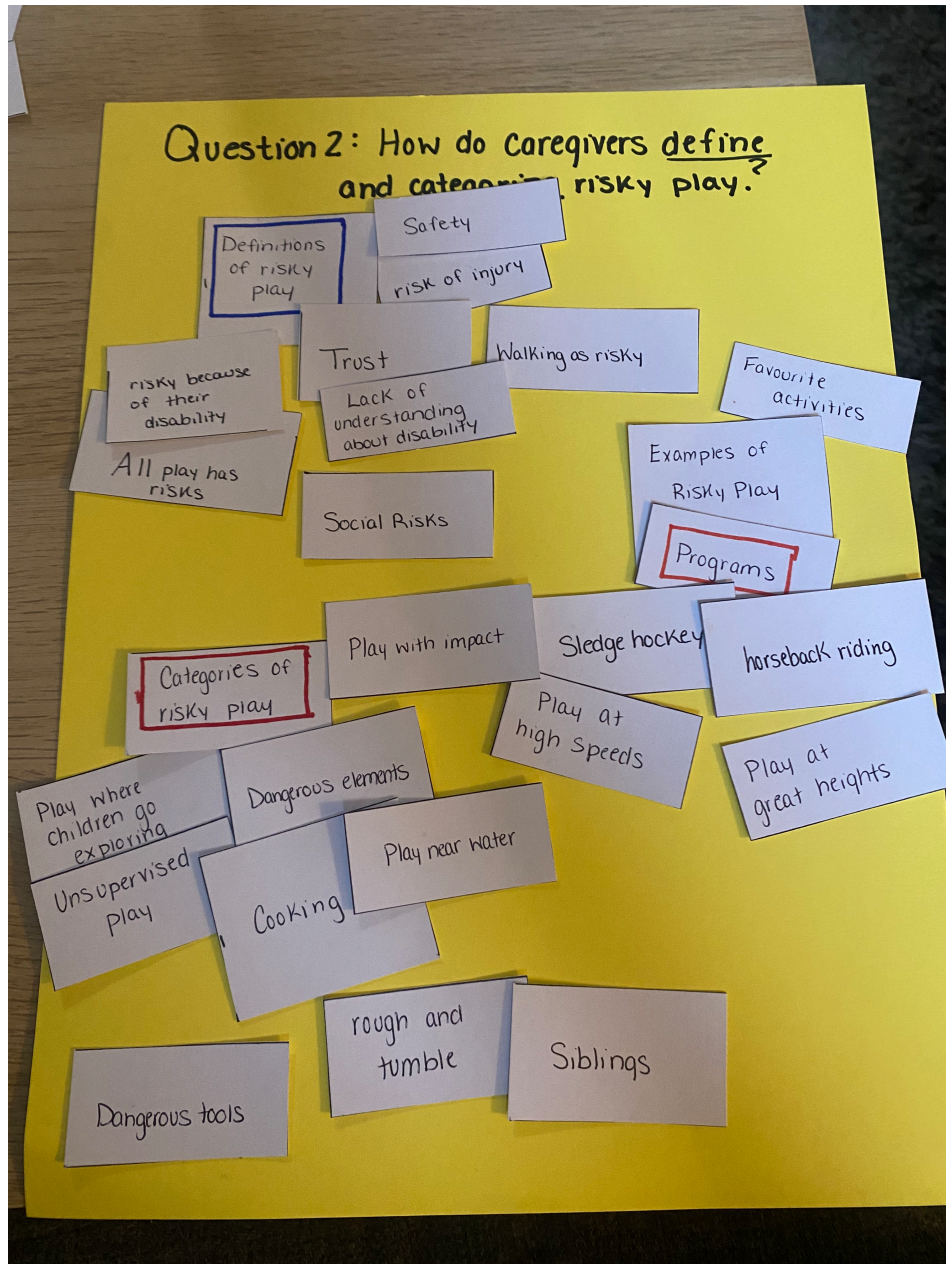 Question 2: How do caregivers define
and categorize risky play.?
Definitions
of risky
play
Safety
risk of injury
Trust
Walking as risky
risky because
of their
disability
Lack of
understanding
about disability
Favourite
activities
All play has
risks
Examples of
Risky Play
Social Risks
Programs
Play with impact
Sledge hockey
horseback riding
Categories of
risky play
Play at
high speeds
Play at
great heights
Play where
children go
exploring
Dangerous elements
Play near water
Unsupervised
play
Cooking
rough and
tumble
Siblings
Dangerous tools